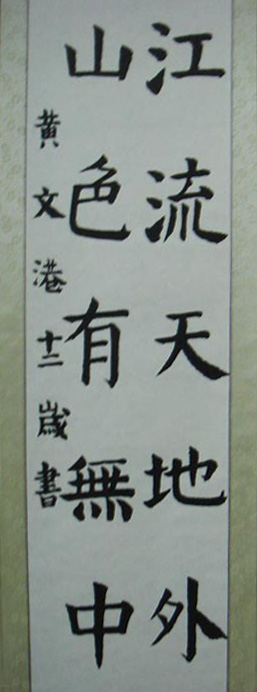 江流天地外
山色有無中
黄文港十二歲書